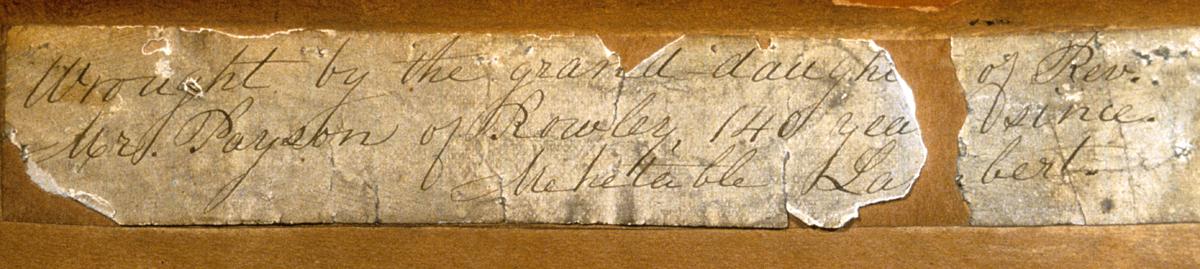 Wrought by the grand daughe of Rev.
Mr. Payson of Rowley, 140 yea since.
Mehetable La bert